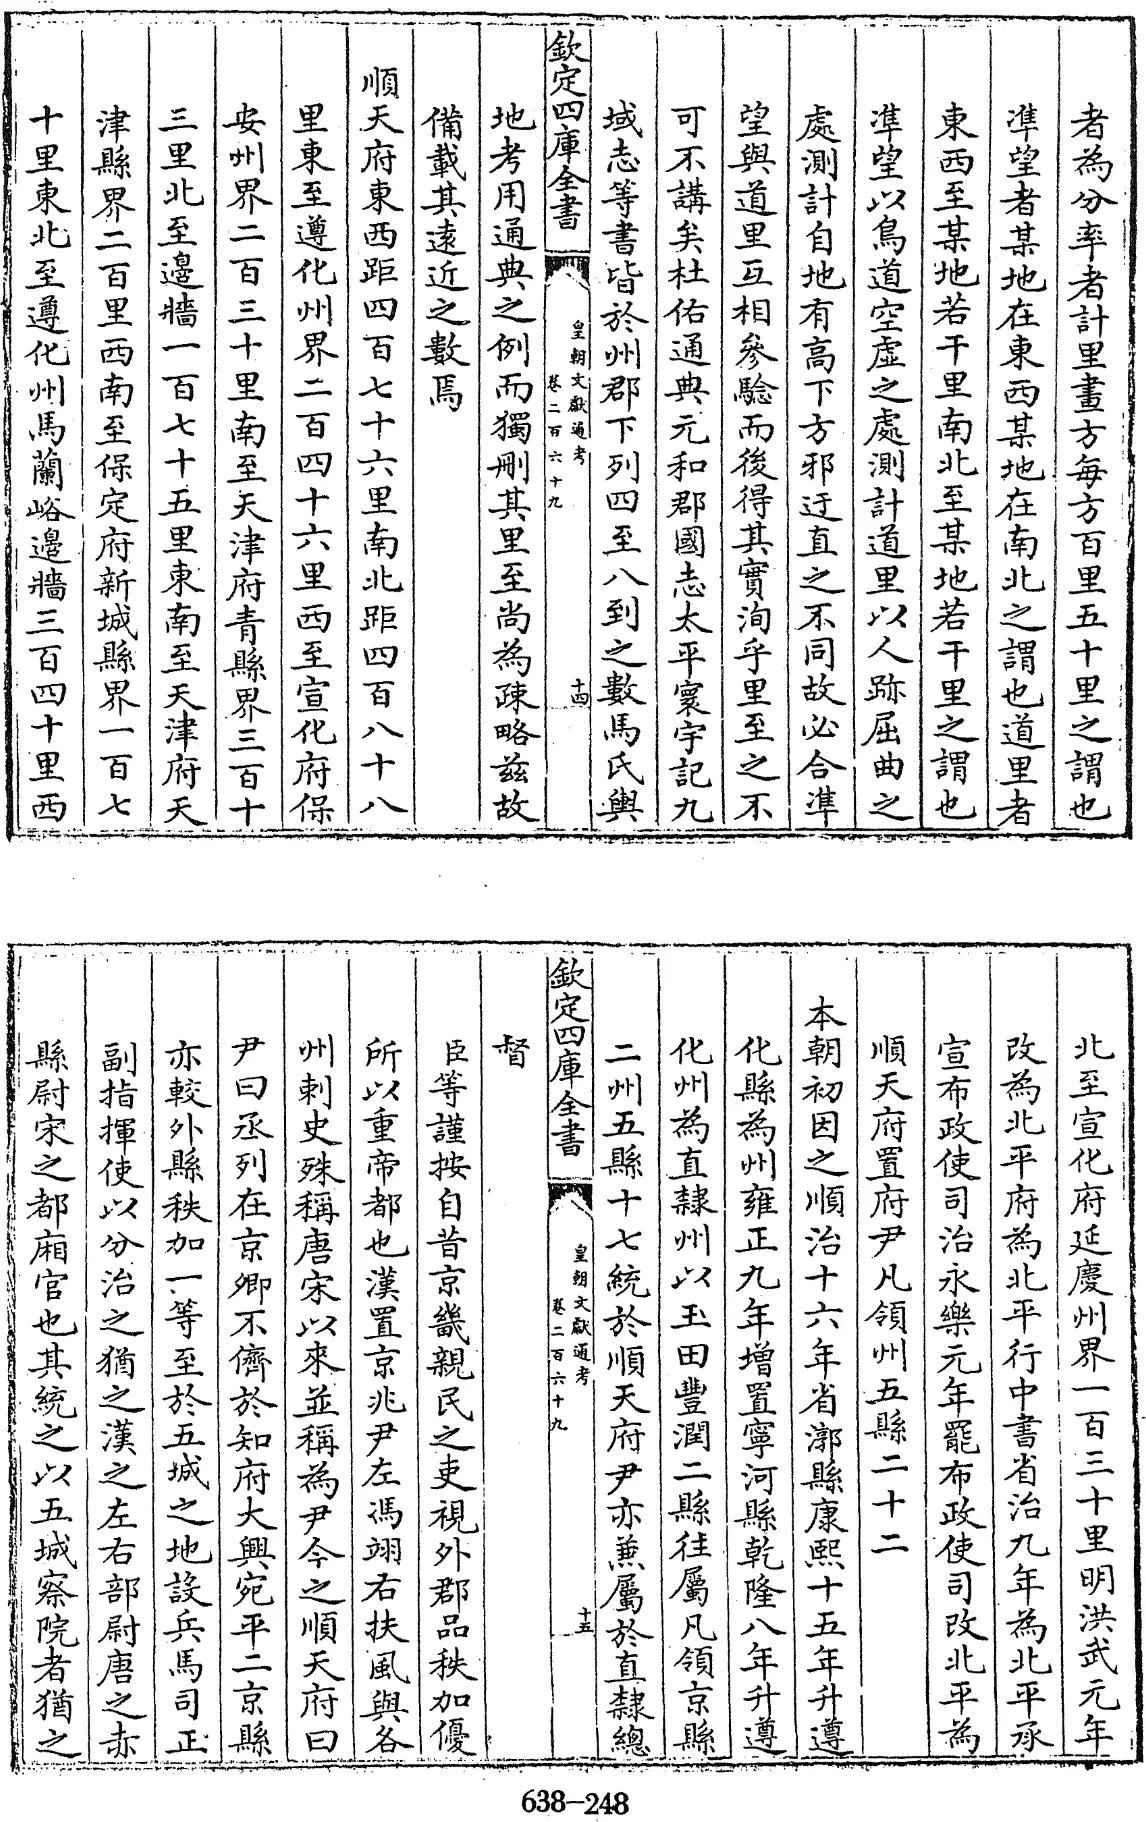 者為分率者計里畫方每方百里五十里之謂也
準望者某地在東西某地在南北之謂也道里者
東西至某地若干里南北至某地若干里之謂也
準望以鳥道空虛之處測計道里以人跡屈曲之
處測計自地有高下方邪迂直之不同故必合準
望與道里互相參驗而後得其實洵乎里至之不
可不講矣杜佑通典元和郡國志太平寰宇記九
域志等書皆於州郡下列四至八到之數馬氏輿
欽定四庫全書
皇朝文獻通考
卷二百六十九
十四
地考用通典之例而獨刪其里至尚為疎略茲故
備載其遠近之數焉
順天府東西距四百七十六里南北距四百八十八
里東至遵化州界二百四十六里西至宣化府保
安州界二百三十里南至天津府青縣界三百十
三里北至邊牆一百七十五里東南至天津府天
津縣界二百里西南至保定府新城縣界一百七
十里東北至遵化州馬蘭峪邊牆三百四十里西
北至宣化府延慶州界一百三十里明洪武元年
改為北平府為北平行中書省治九年為北平承
宣布政使司治永樂元年罷布政使司改北平為
順天府置府尹凡領州五縣二十二
本朝初因之順治十六年省漷縣康熙十五年升遵
化縣為州雍正九年增置寧河縣乾隆八年升遵
化州為直隸州以玉田豐潤二縣往屬凡領京縣
二州五縣十七統於順天府尹亦兼屬於直隸總
欽定四庫全書
皇朝文獻通考
卷二百六十九
十五
督
臣等謹按自昔京畿親民之吏視外郡品秩加優
所以重帝都也漢置京兆尹左馮翊右扶風與各
州刺史殊稱唐宋以來並稱為尹今之順天府曰
尹曰丞列在京卿不儕於知府大興宛平二京縣
亦較外縣秩加一等至於五城之地設兵馬司正
副指揮使以分治之猶之漢之左右部尉唐之赤
縣尉宋之都廂官也其統之以五城察院者猶之
638-248